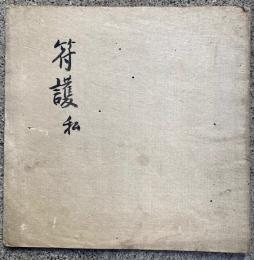 符護私